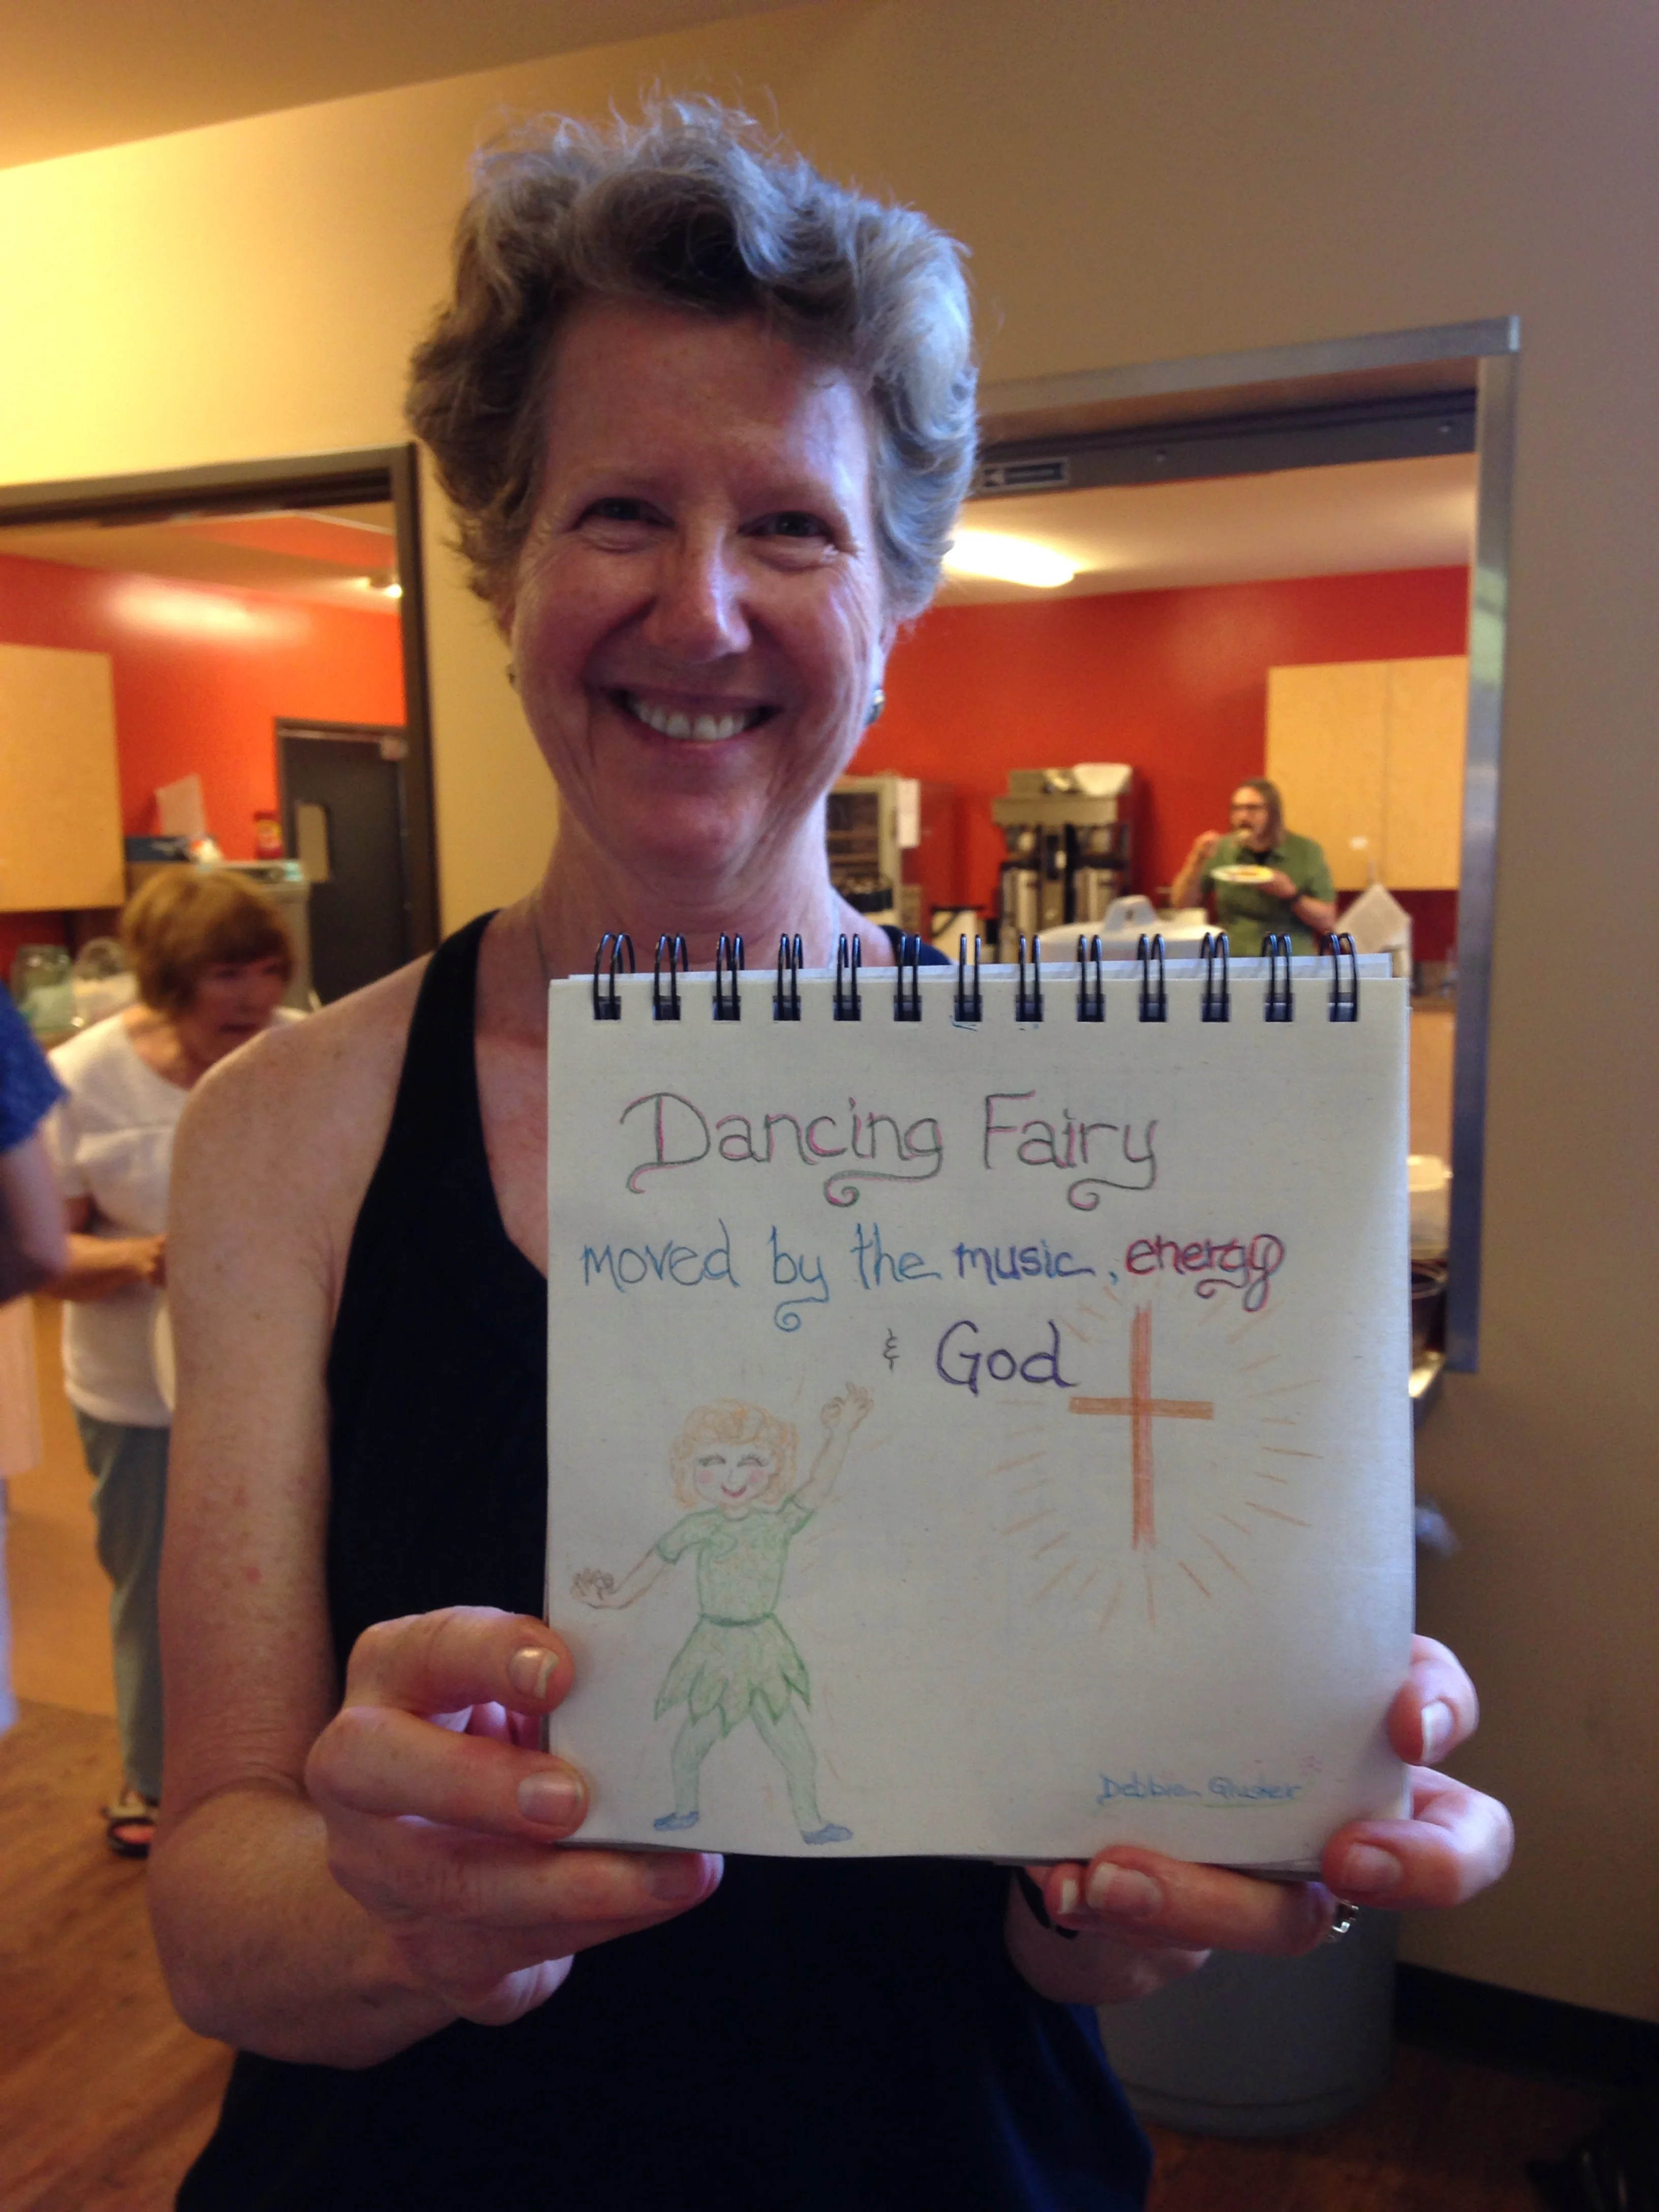 Dancing Fairy
moved by the music, energy
& God
Debbie